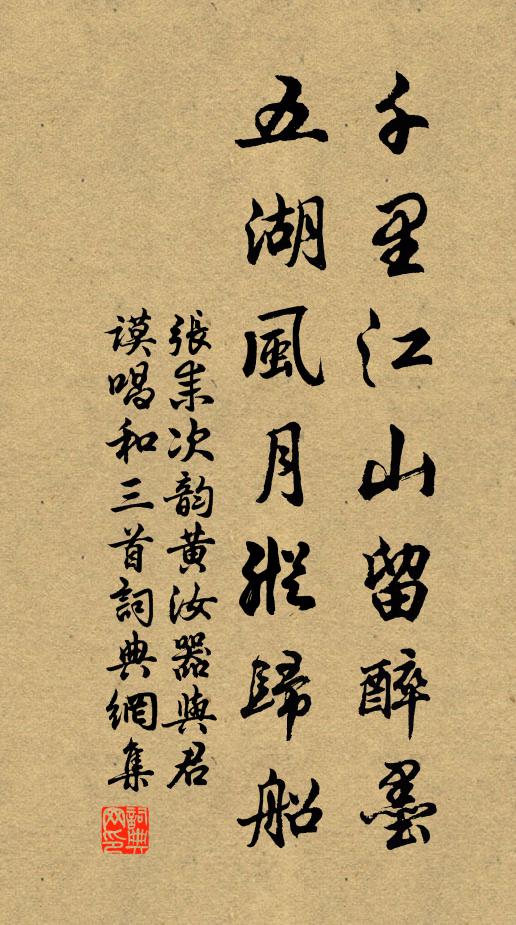 千里江山留醉墨
五湖風月縱歸船
張耒次韵黄汝器與君
謨唱和三首詞典網集
詞典网印